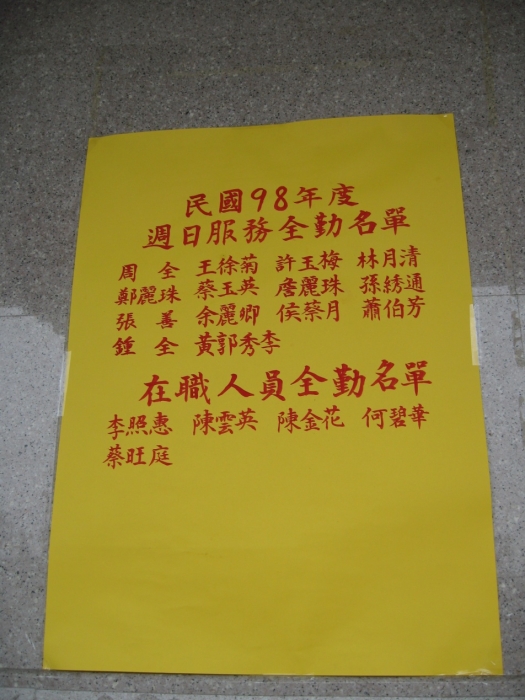 民國98年度
週日服務全勤名單
周 全 王徐菊 許玉梅 林月清
鄭麗珠 蔡玉英 詹麗珠 孫綉通
張 善 余麗卿 侯蔡月 蕭伯芳
鍾 全 黃郭秀李
在職人員全勤名單
李照惠 陳雲英 陳金花 何碧華
蔡旺庭